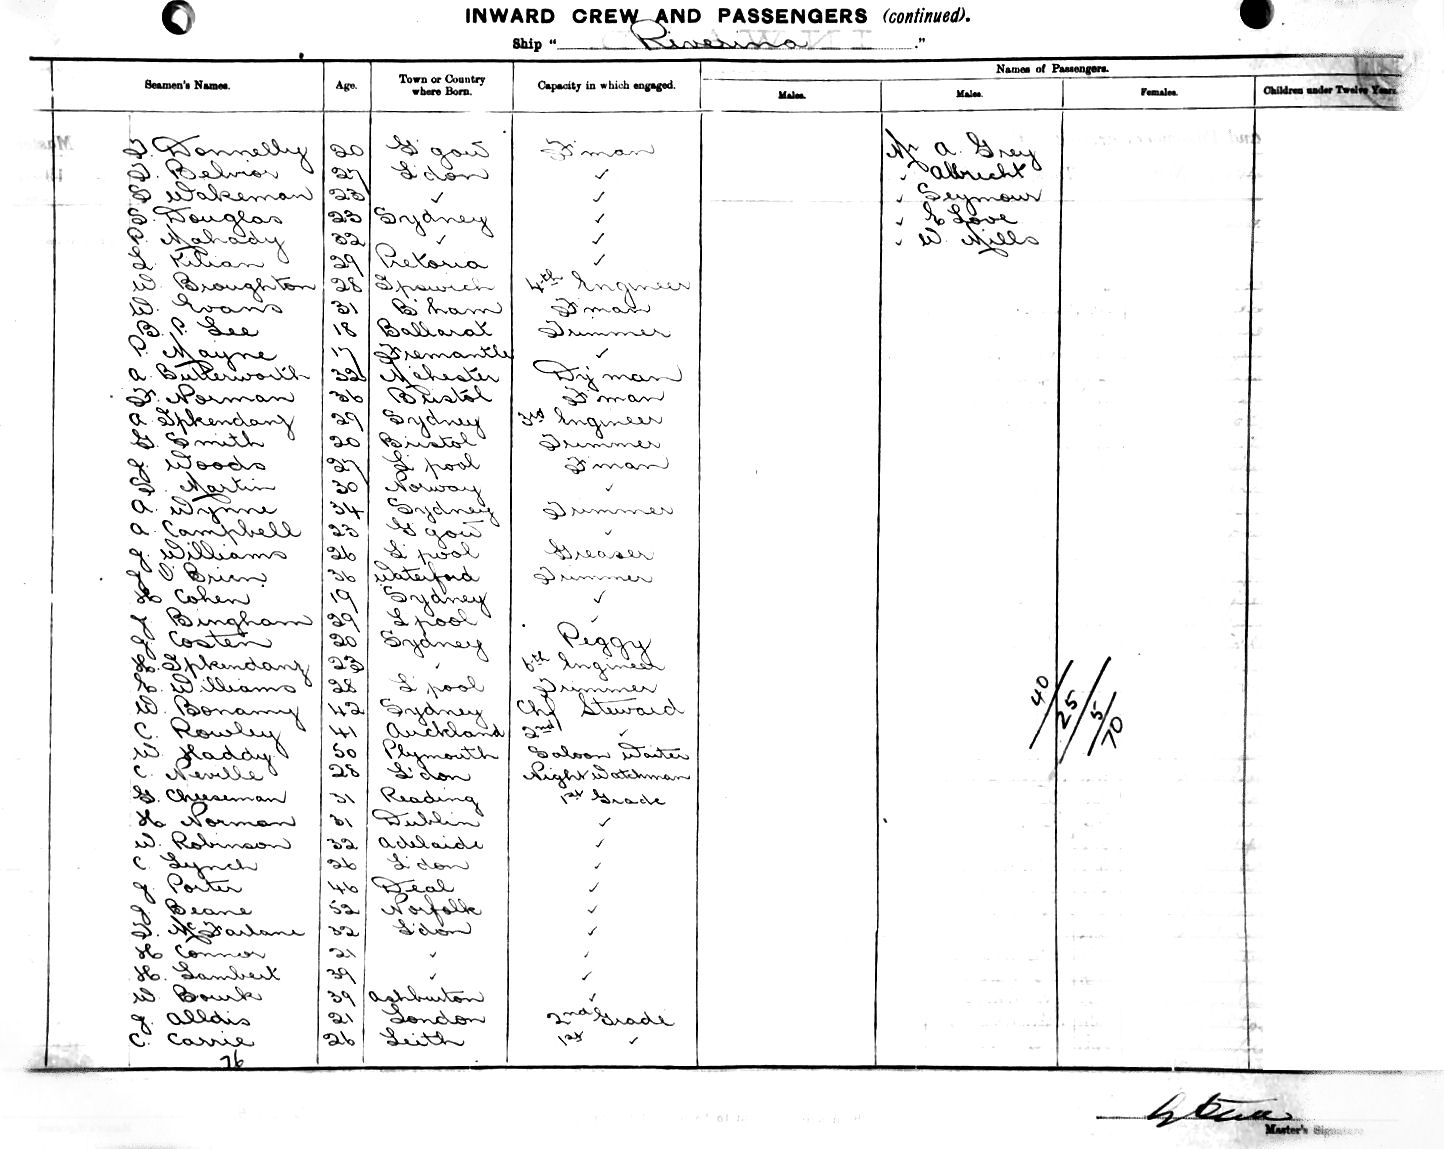 INWARD CREW AND PASSENGERS (continued).
Ship " Riverina ."
Names of Passengers.
Seamen's Names. Age. Town or Country where Born. Capacity in which engaged. Males. Males. Females. Children under Twelve Years.
Donnelly 20 G'gow F'man Mr A. Grey
Belvior 27 L'don ✓ " Albricht
Wakeman 23 ✓ ✓ " Seymour
Douglas 23 Sydney ✓ " E Love
P. Mahady 32 ✓ ✓ " W. Mills
Kilian 29 Pretoria ✓
W. Broughton 28 Ipswich 4th Engineer
Evans 31 B'ham F'man
B. P. Lee 18 Ballarat Trimmer
P. Mayne 17 Fremantle ✓
A. Butterworth 32 M'chester D'yman
Norman 36 Bristol F'man
A. Ipkendanz 29 Sydney 3rd Engineer
G. Smith 20 Bristol Trimmer
J. Woods 27 L'pool F'man
Martin 30 Norway ✓
A. Wynne 34 Sydney Trimmer
A. Campbell 23 G'gow ✓
J. Williams 26 L'pool Greaser
J. O'Brien 36 Waterford Trimmer
H. Cohen 19 Sydney ✓
J. Bingham 29 L'pool ✓
J. Costen 20 Sydney Peggy
H. Ipkendanz 23 " Engineer
H. Williams 28 L'pool Trimmer
Bonamy 42 Sydney Chf Steward
C. Rowley 41 Auckland 2nd ✓
W. Haddy 50 Plymouth Saloon Waiter
C. Neville 28 L'don Night Watchman
G. Cheeseman 31 Reading 1st Grade
H. Norman 31 Dublin ✓
W. Robinson 32 Adelaide ✓
C. Lynch 26 L'don ✓
J. Porter 46 Deal ✓
J. Beane 52 Norfolk ✓
McFarlane 32 L'don ✓
H. Connor 21 ✓ ✓
H. Lambert 39 ✓ ✓
W. Bourk 39 Ashburton ✓
J. Alldis 21 London 2nd Grade
C. Carrie 26 Leith 1st ✓
76
40/25/5/70
Master's Signature